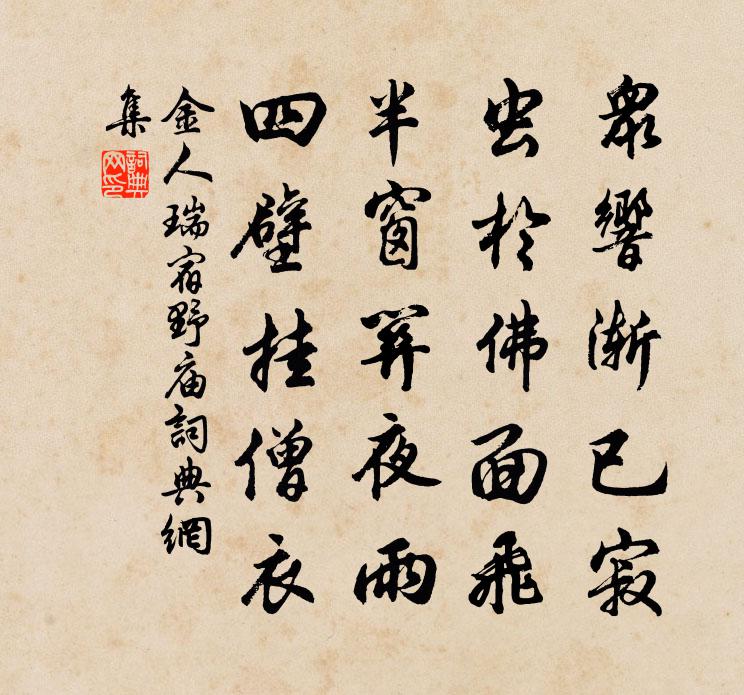 眾響漸已寂
虫於佛面飛
半窗關夜雨
四壁挂僧衣
金人瑞宿野庙詞典網
集
詞典网印